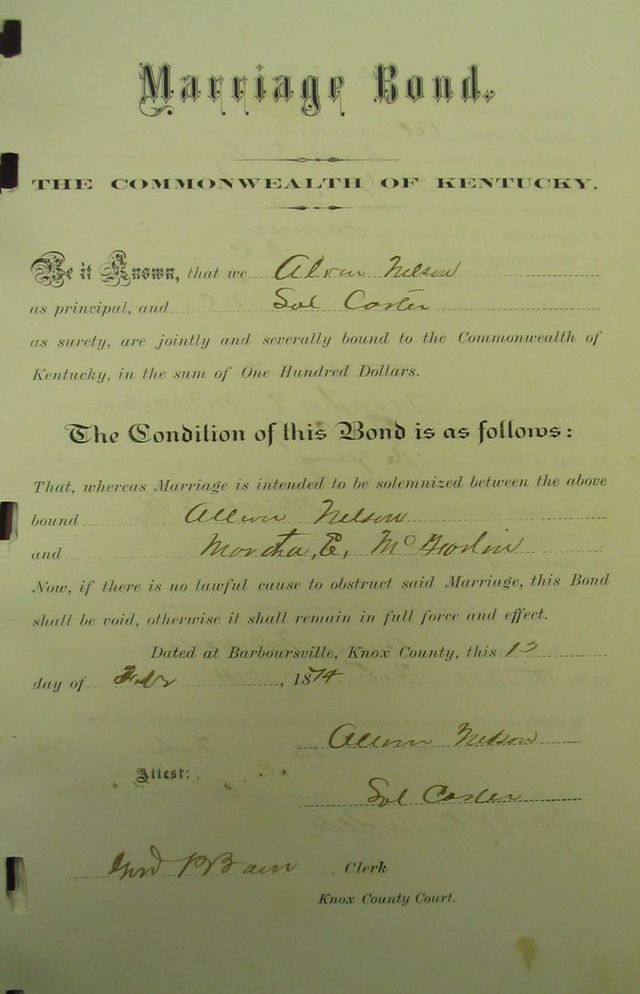 Marriage Bond.
THE COMMONWEALTH OF KENTUCKY.
Be it Known, that we Alvin Nelson
as principal, and Sol Carter
as surety, are jointly and severally bound to the Commonwealth of
Kentucky, in the sum of One Hundred Dollars.
The Condition of this Bond is as follows:
That, whereas Marriage is intended to be solemnized between the above
bound Nelson
and Martha, E,
Now, if there is no lawful cause to obstruct said Marriage, this Bond
shall be void, otherwise it shall remain in full force and effect.
Dated at Barboursville, Knox County, this
day of Feb, 1874
Nelson
Attest:
Sol Carter
Clerk
Knox County Court.